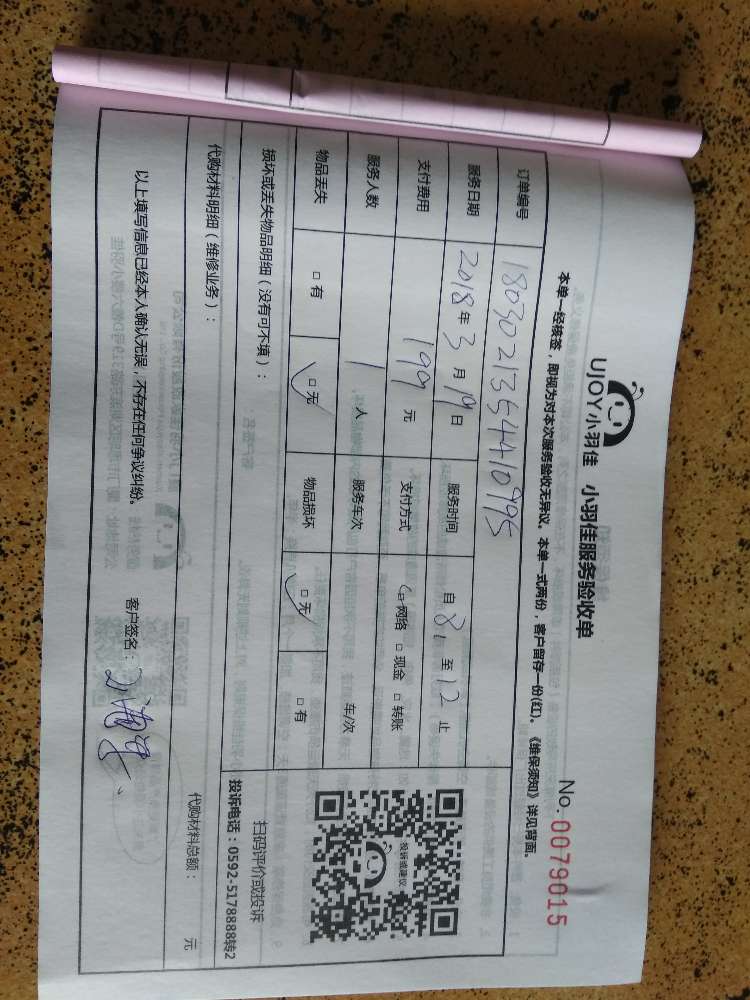 UJOY小羽佳 小羽佳服务验收单
No.0079015
本单一经核签，即视为对本次服务验收无异议。本单一式两份，客户留存一份(红)。《维保须知》详见背面。
订单编号 1803021354410995
服务日期 2018年3月19日 服务时间 自8至12止
支付费用 199元 支付方式 网络 现金 转账
服务人数 1人 服务车次 车/次
物品丢失 有 无 物品损坏 无 有
损坏或丢失物品明细（没有可不填）：
投诉或建议
扫码评价或投诉
投诉电话：0592-5178888转2
代购材料明细（维修业务）：
代购材料总额： 元
以上填写信息已经本人确认无误，不存在任何争议纠纷。
客户签名：